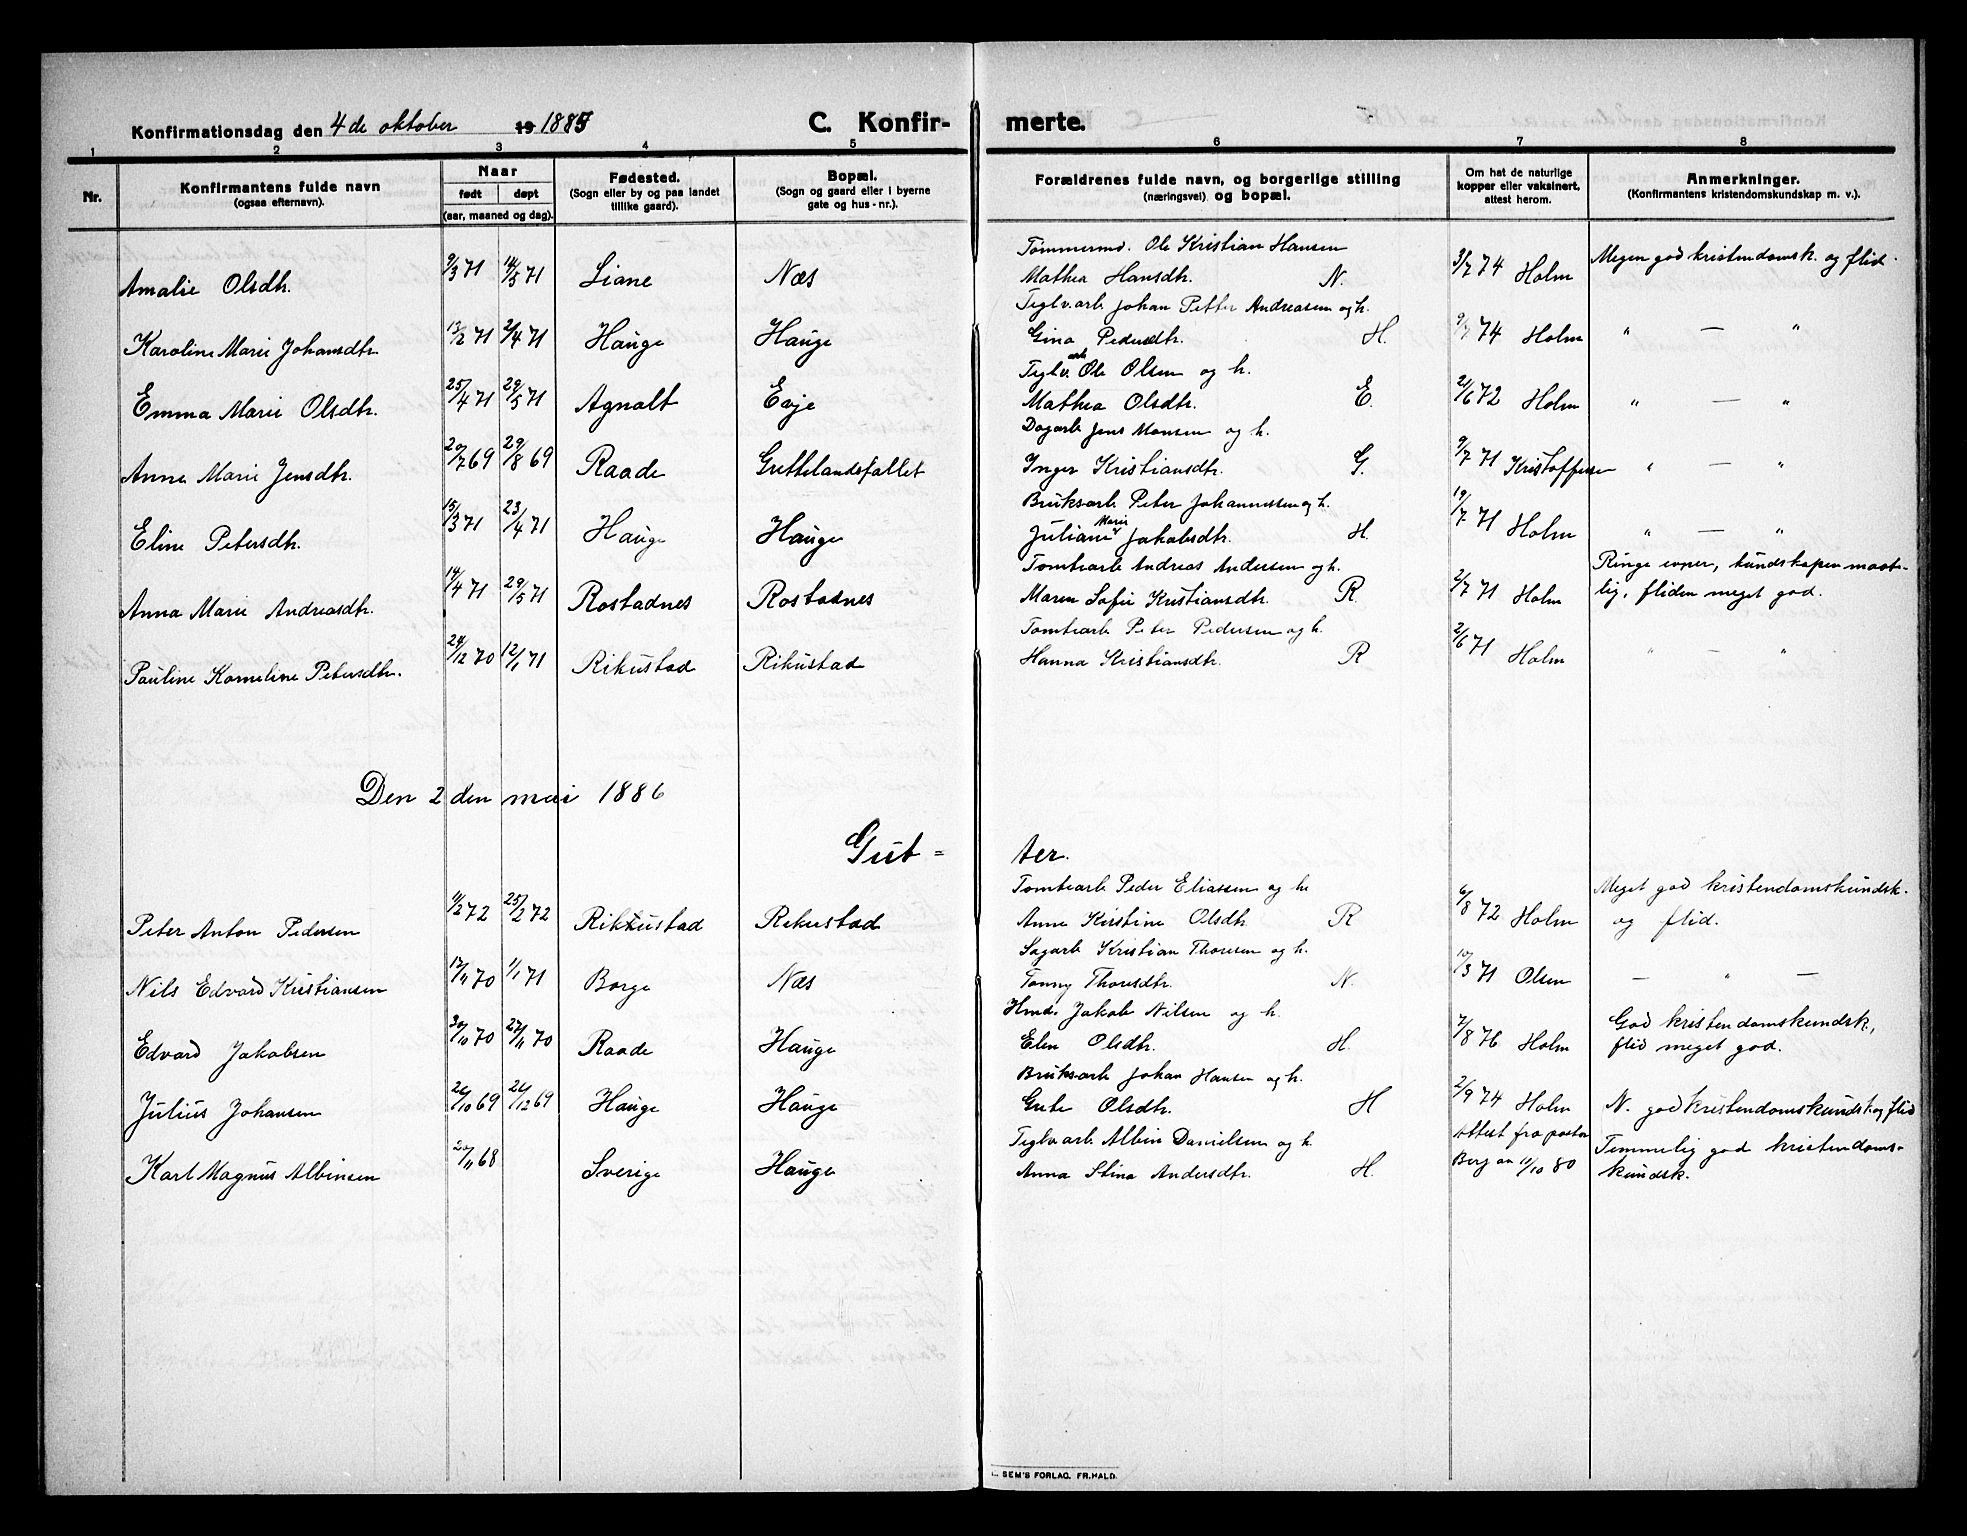 Konfirmationsdag den 4de oktober 19 1885 C. Konfir- merte.
1 2 3 4 5 6 7 8
Nr. Konfirmantens fulde navn (ogsaa efternavn). Naar født døpt (aar, maaned og dag). Fødested. (Sogn eller by og paa landet tillike gaard). Bopæl. (Sogn og gaard eller i byerne gate og hus-nr.). Forældrenes fulde navn, og borgerlige stilling (næringsvei) og bopæl. Om hat de naturlige kopper eller vaksinert, attest herom. Anmerkninger. (Konfirmantens kristendomskundskap m. v.).
Tømmermd. Ole Kristian Hansen
Amalie Olsdtr. 9/3 71 14/5 71 Liane Næs Mathea Hansdtr. N. 3/7 74 Holm Megen god kristendomsk. og flid.
Teglv.arb. Johan Petter Andreasen og h.
Karoline Marie Johansdtr. 13/2 71 2/4 71 Hauge Hauge Gina Pedersdtr. H. 9/7 74 Holm " — "
Teglv.arb. Ole Olsen og h.
Emma Marie Olsdtr. 25/4 71 29/5 71 Agnalt Evje Mathea Olsdtr. E. 21/6 72 Holm " — "
Dagarb. Jens Monsen og h.
Anne Marie Jensdtr. 20/7 69 29/8 69 Raade Grettelandsfallet Inger Kristiansdtr. G. 9/7 71 Kristoffersen " — "
Bruksarb. Peter Johannessen og h.
Eline Petersdtr. 15/3 71 23/4 71 Hauge Hauge Juliane Marie Jakobsdtr. H. 19/7 71 Holm " — "
Tomtearb. Andreas Andersen og h.
Anna Marie Andreasdtr. 14/4 71 29/5 71 Rostadnes Rostadnes Maren Sofie Kristiansdtr. R 2/7 71 Holm Ringe evner, kundskapen maat-
lig, fliden meget god.
Tomtearb. Peter Pedersen og h.
Pauline Korneline Petersdtr. 24/12 70 12/1 71 Rikustad Rikustad Hanna Kristiansdtr. R 2/6 71 Holm " — "
Den 2den mai 1886
Gut- ter.
Tomtearb. Peder Eliassen og h.
Peter Anton Pedersen 11/2 72 25/2 72 Rikkustad Rekustad Anne Kirstine Olsdtr. R 6/8 72 Holm Meget god kristendomskundsk.
og flid.
Sagarb. Kristian Thoresen og h.
Nils Edvard Kristiansen 17/11 70 1/1 71 Borge Næs Tonny Thoresdtr. N. 10/3 71 Olsen — " —
Hmd. Jakob Nilsen og h.
Edvard Jakobsen 30/10 70 27/11 70 Raade Hauge Elen Olsdtr. H. 7/8 76 Holm God kristendomskundsk,
flid meget god.
Bruksarb. Johan Hansen og h.
Julius Johansen 26/10 69 26/12 69 Hauge Hauge Grete Olsdtr. H 2/9 74 Holm N. god kristendomskundsk og flid
Teglv.arb. Albin Danielsen og h.
Karl Magnus Albinsen 20/11 68 Sverige Hauge Anna Stina Andersdtr. H. Attest fra pastor
Berg an 11/10 80 Temmelig god kristendoms-
kundsk.
SEM'S FORLAG, FR.HALD.